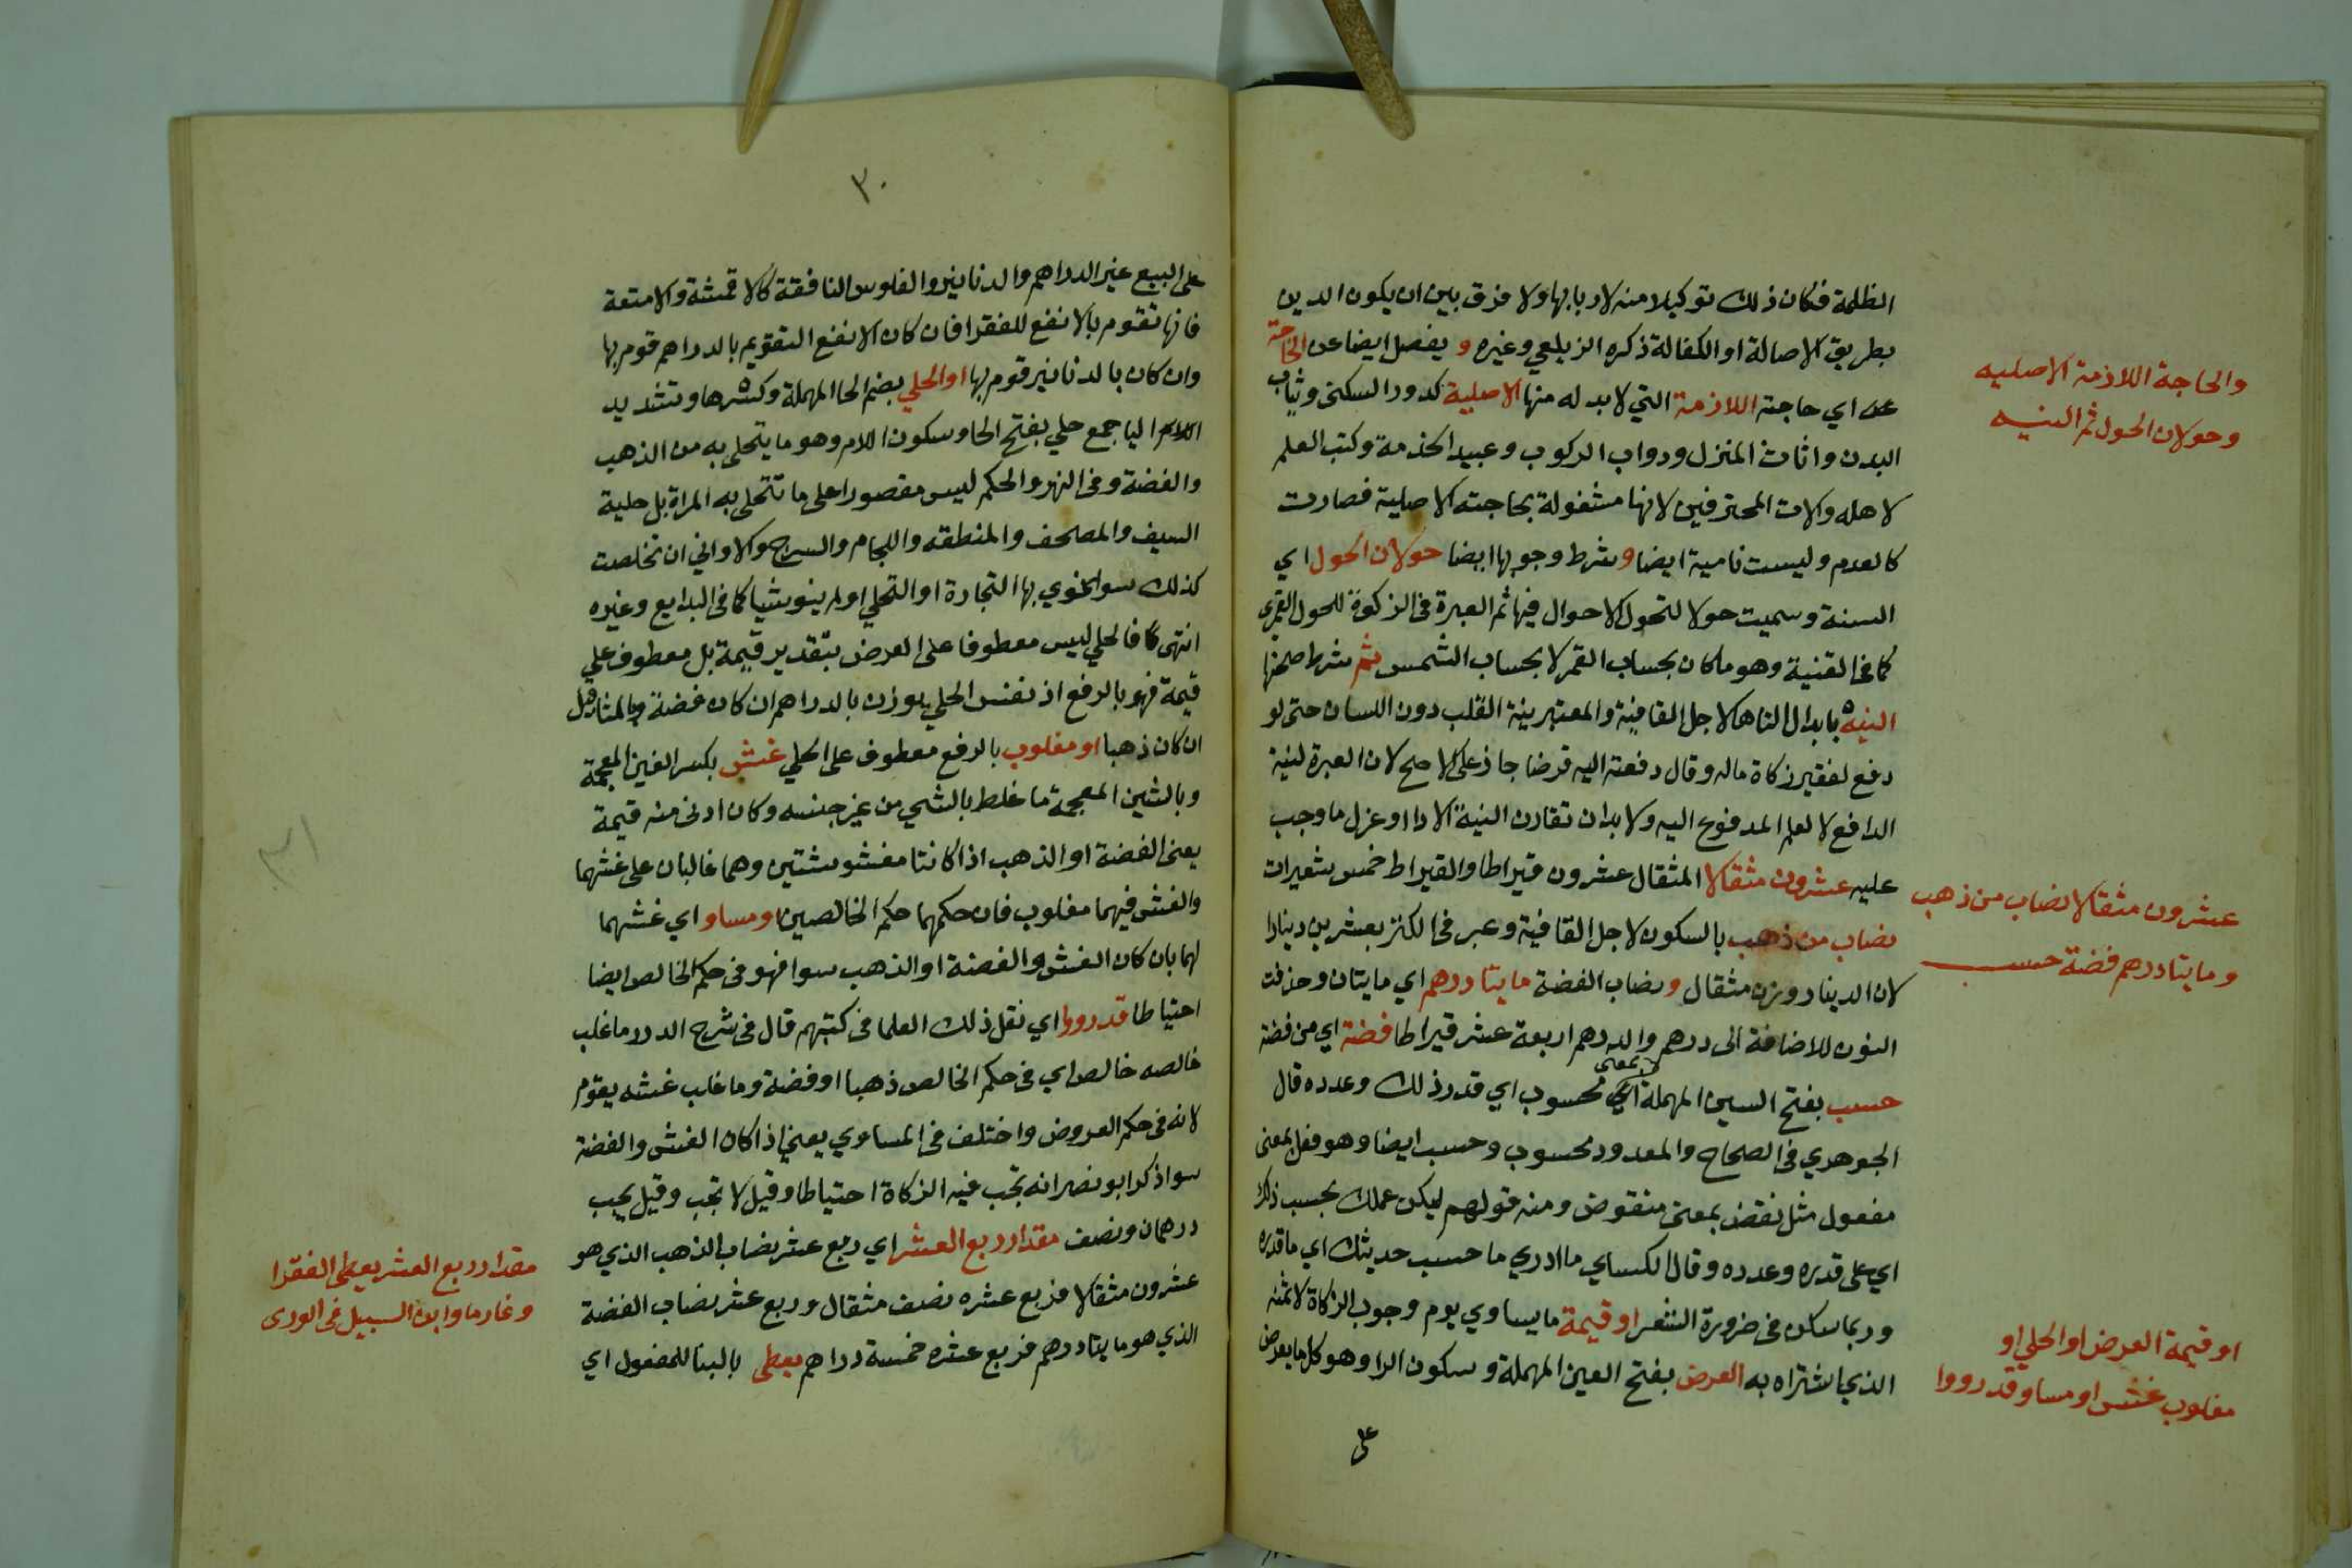 الظلمة فكان ذلك توكيلا منه لاربابها ولا فرق بين ان يكون الدين
بطريق الاصالة او الكفالة ذكره الزيلعي وغيره و يفضل ايضا عن الحاجة
اي حاجته اللازمة التي لا بد له منها الاصلية كدور السكنى وثياب
البدن واثاث المنزل ودواب الركوب وعبيد الخدمة وكتب العلم
لاهله والات المحترفين لانها مشغولة بحاجته الاصلية فصارت
كالعدم وليست نامية ايضا وشرط وجوبها ايضا حولان الحول اي
السنة وسميت حولا لتحول الاحوال فيها ثم العبرة في الزكوة للحول القمري
كما في القنية وهو ما كان بحساب القمر لا بحساب الشمس ثم شرط صحتها
النيه بابدال التا ها لاجل القافية والمعتبر نية القلب دون اللسان حتى لو
دفع لفقير زكاة ماله وقال دفعته اليه قرضا جاز على الاصح لان العبرة لنية
الدافع لا لعلم المدفوع اليه ولا بد ان تقارن النية الادا او عزل ما وجب
عليه عشرون مثقالا المثقال عشرون قيراطا والقيراط خمس شعيرات
نصاب من ذهب بالسكون لاجل القافية وعبر في الكنز بعشرين دينارا
لان الدينار وزن مثقال ونصاب الفضة مايتا درهم اي مايتان وحذفت
النون للاضافة الى درهم والدرهم اربعة عشر قيراطا فضة اي من فضة
حسب بفتح السين المهملة بمعنى محسوب اي قدر ذلك وعدده قال
الجوهري في الصحاح والمعدود محسوب وحسب ايضا وهو فعل بمعنى
مفعول مثل نقض بمعنى منقوض ومنه قولهم ليكن عملك بحسب ذلك
اي على قدره وعدده وقال الكساي ما ادري ما حسب حديثك اي ما قدره
وربما سكن في ضرورة الشعر او قيمة ما يساوي يوم وجوب الزكاة لا ثمنه
الذي اشتراه به العرض بفتح العين المهملة وسكون الرا وهو كل ما يعرض
على
والحاجة اللازمة الاصليه
وحولان الحول ثم النيه
عشرون مثقالا نصاب من ذهب
ومايتا درهم فضة حسب
او قيمة العرض او الحلي او
مغلوب غش او مساو قد رووا
٣٠
على البيع غير الدراهم والدنانير والفلوس النافقة كالاقمشة والامتعة
فانها تقوم بالانفع للفقرا فان كان الانفع التقويم بالدراهم قوم بها
وان كان بالدنانير قوم بها او الحلي بضم الحا المهملة وكسرها وتشديد
اليا جمع حلي بفتح الحا وسكون اللام وهو ما يتحلى به من الذهب
والفضة وفي النهر والحكم ليس مقصورا على ما تتحلى به المراة بل حلية
السيف والمصحف والمنطقه واللجام والسرج والاواني ان تخلصت
كذلك سوا نوي بها التجارة او التحلي او لم ينو شيا كما في البدايع وغيره
انتهى فالحلي ليس معطوفا على العرض بتقدير قيمة بل معطوف على
قيمة فهو بالرفع اذ نفس الحلي يوزن بالدراهم ان كان فضة وبالمثاقيل
ان كان ذهبا او مغلوب بالرفع معطوف على الحلي غش بكسر الغين المعجمة
وبالشين المعجمة ما خلط بالشي من غير جنسه وكان ادنى منه قيمة
يعني الفضة او الذهب اذا كانتا مغشوشتين وهما غالبان على غشهما
والغش فيهما مغلوب فان حكمهما حكم الخالصين او مساو اي غشهما
لهما بان كان الغش والفضة او الذهب سوا فهو في حكم الخالص ايضا
احتياطا قد رووا اي نقل ذلك العلما في كتبهم قال في شرح الدرر ما غلب
خالصه خالص اي في حكم الخالص ذهبا او فضة وما غلب غشه يقوم
لانه في حكم العروض واختلف في المساوي يعني اذا كان الغش والفضة
سوا ذكر ابو نصر انه تجب فيه الزكاة احتياطا وقيل لا تجب وقيل يجب
درهمان ونصف مقدار ربع العشر اي ربع عشر نصاب الذهب الذي هو
عشرون مثقالا فربع عشره نصف مثقال وربع عشر نصاب الفضة
الذي هو مايتا درهم فربع عشره خمسة دراهم يعطى بالبنا للمفعول اي
٣١
مقدار ربع العشر يعطى الفقرا
وغارما وابن السبيل في الورى